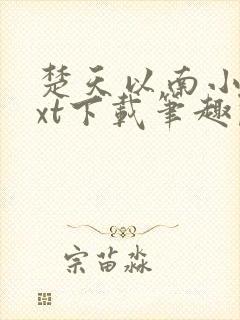 楚天以南小
xt下载笔趣
宗苗淼